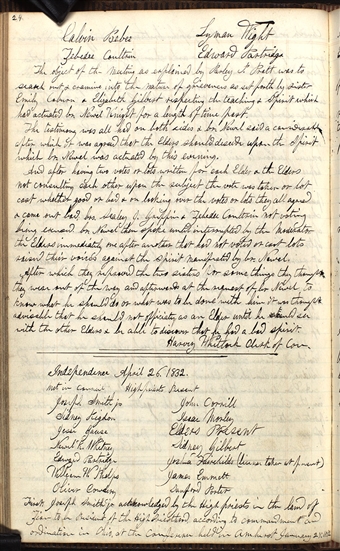 24
Calvin Bebee Lyman Wight
Zebedee Coultrin Edward Partridge
The object of the Meeting as explained by Parley P. Pratt was to
search out & examine into the nature of grievances as set forth by sister
Emily Coburn & Elizabeth Gilbert respecting the teaching & Spirit which
had actuated bro Newel Knight for a length of time past.
The testimony was all had on both sides & bro Newel said a considerable
after which it was agreed that the Elders should decide upon the Spirit
which bro Newel was actuated by this evening.
And after having two votes or lots written for each Elder & the Elders
not consulting each other upon the subject the vote was taken or lot
cast whether good or bad & on looking over the votes or lots they all agreed
& came out bad
being
The Elders immediately one after another that had not voted or cast lots
raised their voices against the spirit manifested by bro Newel.
After which they the two sisters for some things they thought
they were out of the way and afterwards at the request of bro Newel, to
know what he should do or what was to be done with him it was thought
adviseable that he should not officiate as an Elder until he could see
with the other Elders & be able to discover that he had a bad spirit.
Harvey Whitlock Clerk of Con.
Independence April 26. 1832.
Met in Council Highpriests Present
Joseph Smith jr John Corrill
Sidney Rigdon Isaac Morley
Jesse Gause Elders Present
Newel K. Whitney Sidney Gilbert
Edward Partridge Joshua Fairchilds
William W. Phelps James Emmett
Oliver Cowdery Sanford Porter
First Joseph Smith jr acknowledged by the Highpriests in the land of
Zion to be President of the High Priesthood, according to commandment and
ordination in Ohio, at the Conference held in Amherst January 25, 1832